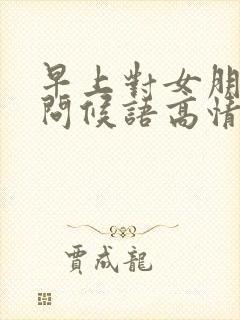 早上對女朋
問候語高情
賈成龍